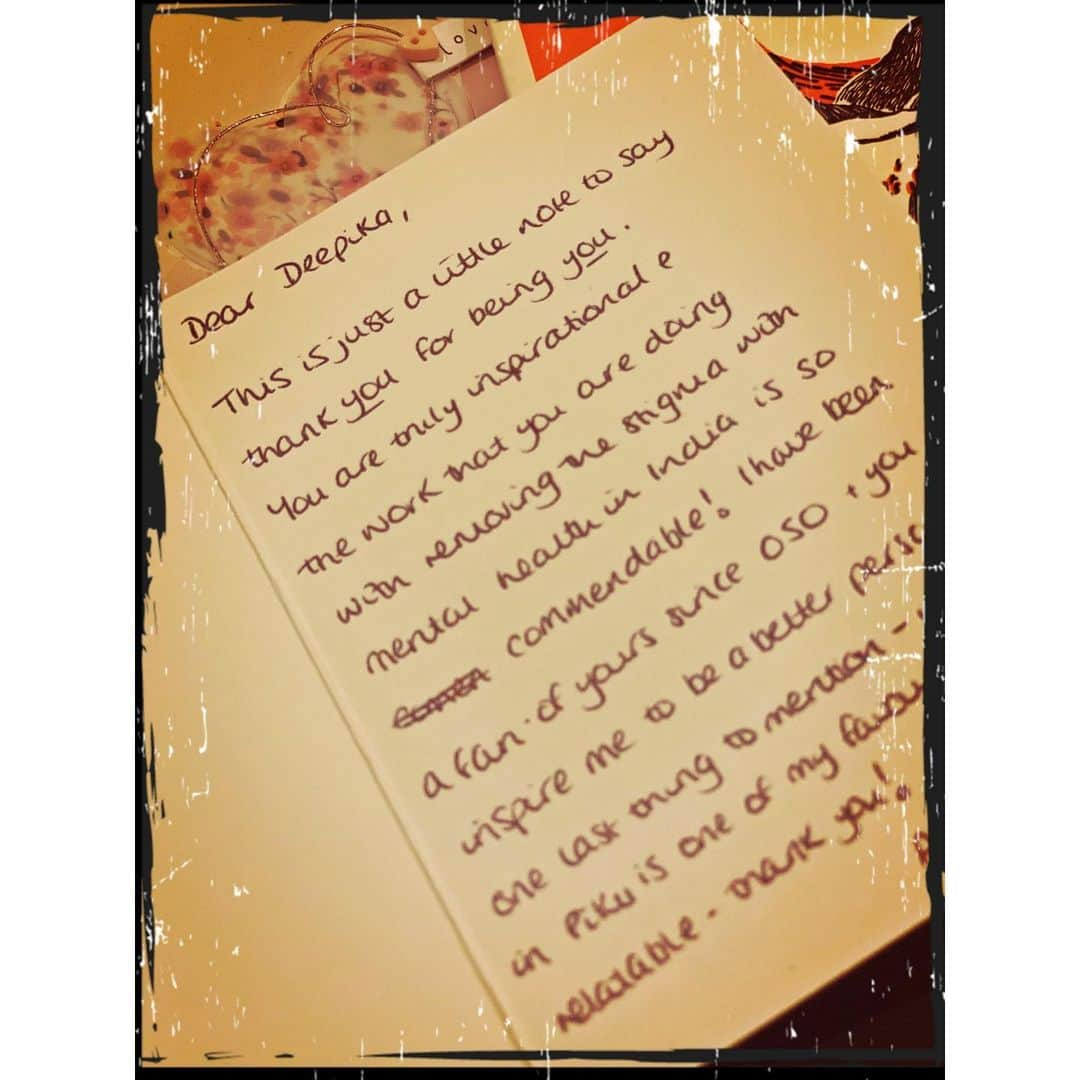 love
Dear Deepika,
This is just a little note to say
thank you for being you.
You are truly inspirational e
the work that you are doing
with removing the stigma with
mental health in India is so
commendable! I have been
a fan of yours since OSO + you
inspire me to be a better
one last thing to mention -
in Piku is one of my
relatable - thank you!